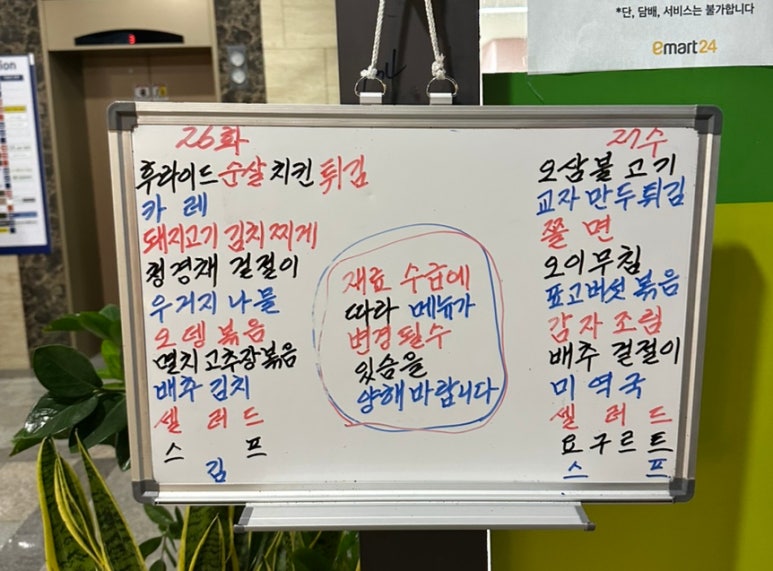 *단, 담배, 서비스는 불가합니다
emart24
26화
후라이드 순살 치킨 튀김
카 레
돼지고기 김치 찌게
청경채 겉절이
우거지 나물
오뎅 볶음
멸치 고추장 볶음
배추 김치
셀 러 드
스 프
김
재료 수급에
따라 메뉴가
변경 될 수
있슴을
양해 바랍니다
27수
오삼불고기
교자 만두 튀김
쫄 면
오이무침
표고버섯 볶음
감자 조림
배추 겉절이
미역국
셀 러 드
요구르트
스 프